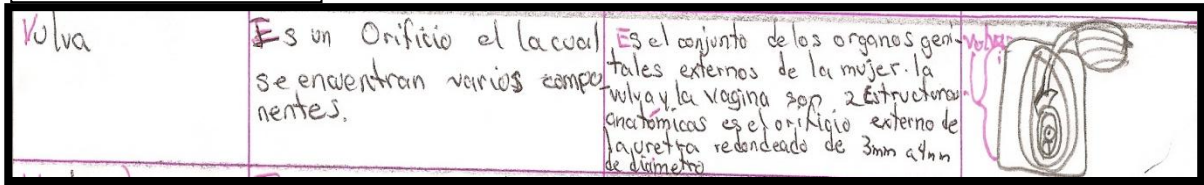 Vulva
Es un Orificio el la cual
se encuentran varios compo-
nentes.
Es el conjunto de los organos geni-
tales externos de la mujer. la
vulva y la vagina son 2 Estructuras
anatómicas es el orificio externo de
la uretra redondeado de 3mm a 4mm
de diametro
vulva